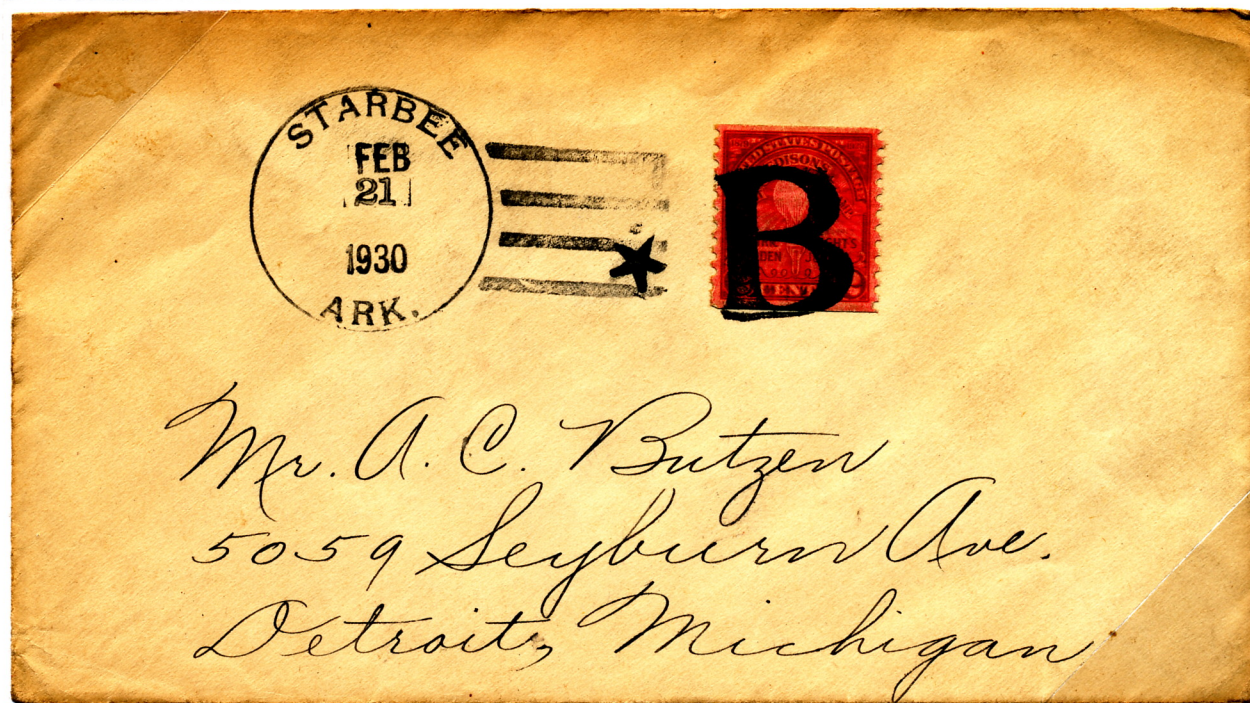 STARBEE
FEB
21
1930
ARK.
UNITED STATES POSTAGE
EDISON'S
B
Mr. A. C. Butzen
5059 Seyburn Ave.
Detroit, Michigan